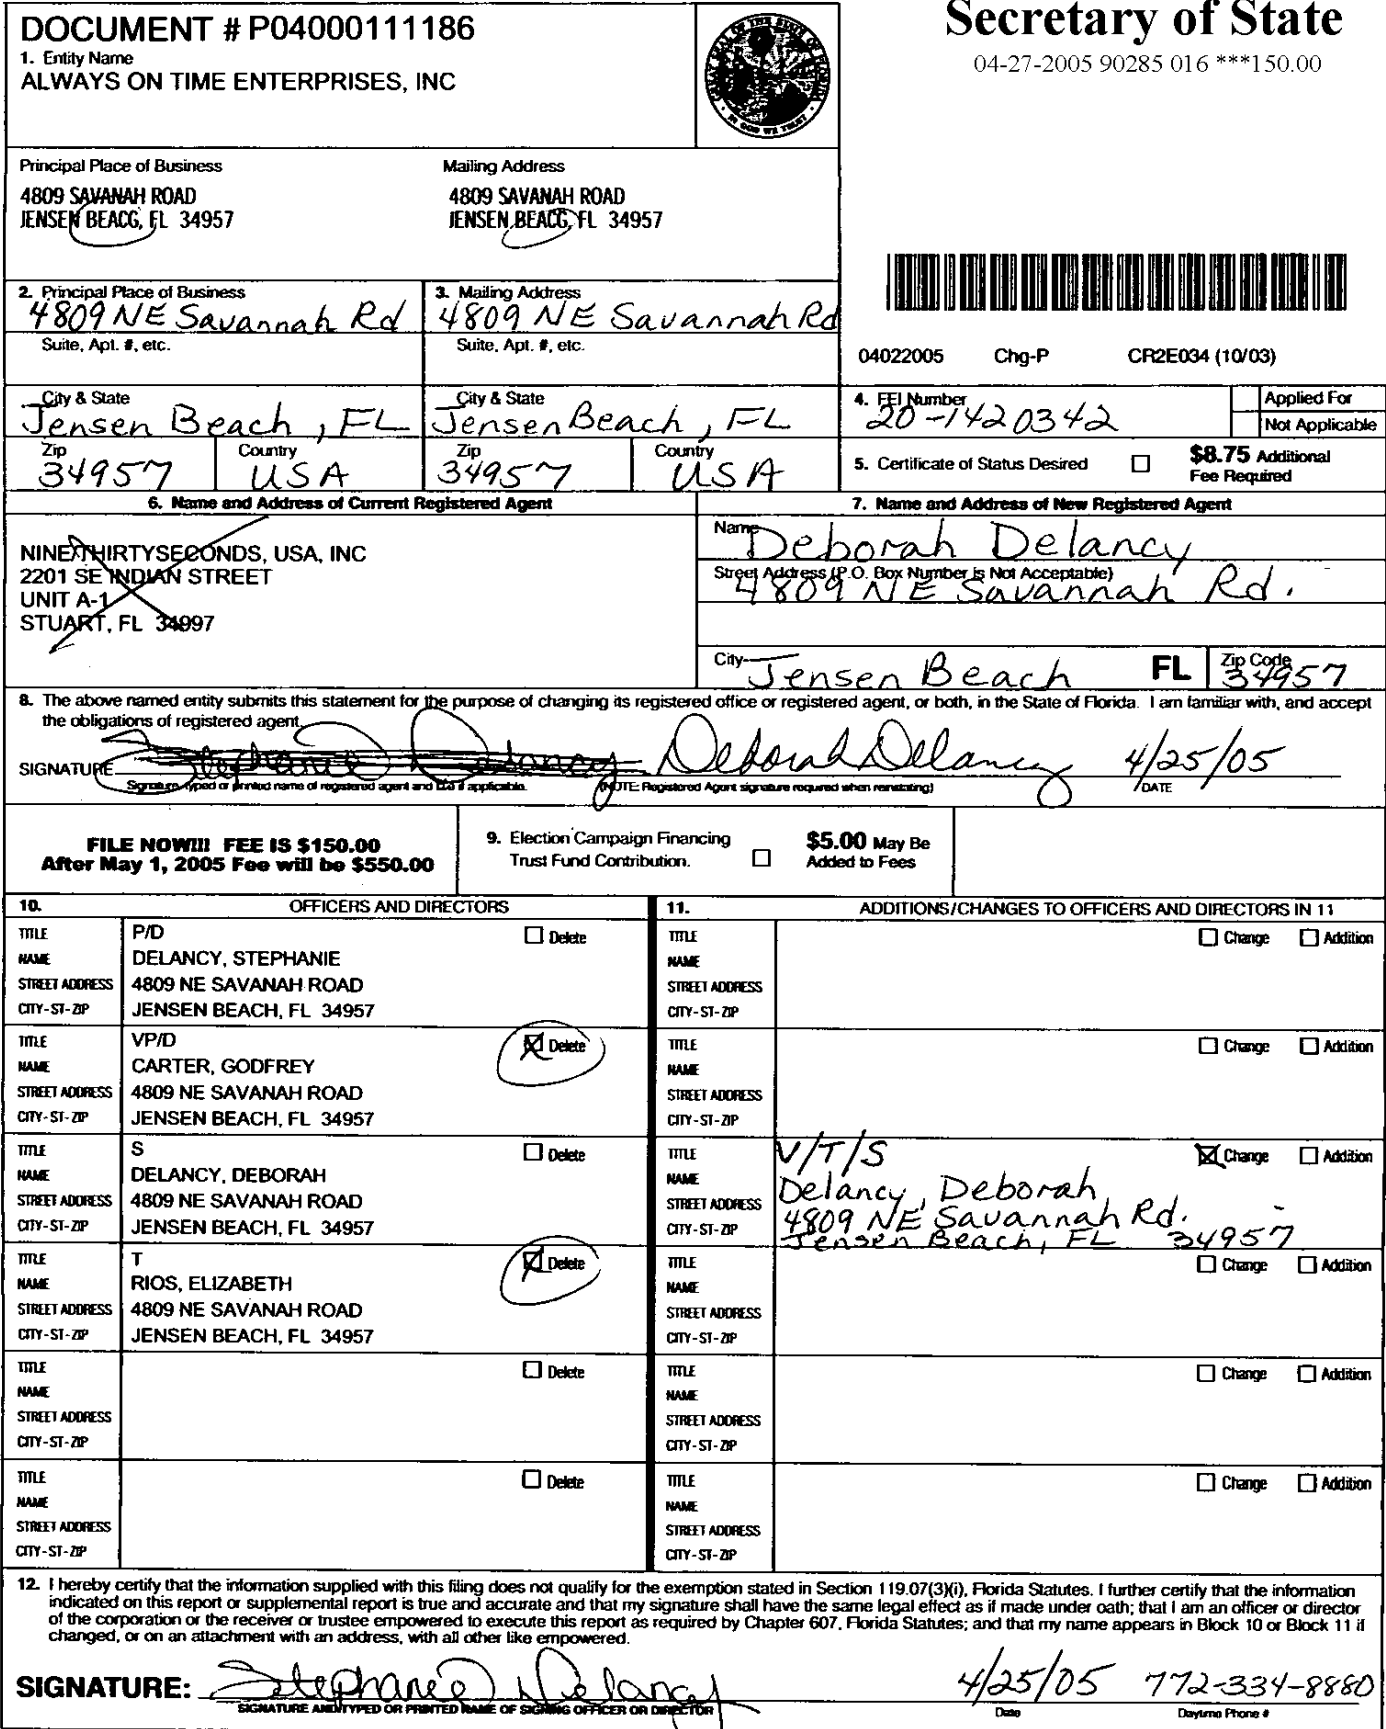 DOCUMENT # P04000111186
1. Entity Name
ALWAYS ON TIME ENTERPRISES, INC
Secretary of State
04-27-2005 90285 016 ***150.00
IN GOD WE TRUST
Principal Place of Business
4809 SAVANAH ROAD
JENSEN BEACG, FL 34957
Mailing Address
4809 SAVANAH ROAD
JENSEN BEACG, FL 34957
2. Principal Place of Business
4809 NE Savannah Rd
Suite, Apt. #, etc.
City & State
Jensen Beach, FL
Zip
34957
Country
USA
3. Mailing Address
4809 NE Savannah Rd
Suite, Apt. #, etc.
City & State
Jensen Beach, FL
Zip
34957
Country
USA
04022005 Chg-P CR2E034 (10/03)
4. FEI Number
20-1420342
Applied For
Not Applicable
5. Certificate of Status Desired
$8.75 Additional
Fee Required
6. Name and Address of Current Registered Agent
NINE/THIRTYSECONDS, USA, INC
2201 SE INDIAN STREET
UNIT A-1
STUART, FL 34997
7. Name and Address of New Registered Agent
Name
Deborah Delancy
Street Address (P.O. Box Number is Not Acceptable)
4809 NE Savannah Rd.
City
Jensen Beach
FL
Zip Code
34957
8. The above named entity submits this statement for the purpose of changing its registered office or registered agent, or both, in the State of Florida. I am familiar with, and accept
the obligations of registered agent.
SIGNATURE Stephanie Delancy Deborah Delancy 4/25/05
Signature, typed or printed name of registered agent and title if applicable. (NOTE: Registered Agent signature required when reinstating) DATE
FILE NOW!!! FEE IS $150.00
After May 1, 2005 Fee will be $550.00
9. Election Campaign Financing
Trust Fund Contribution.
$5.00 May Be
Added to Fees
10. OFFICERS AND DIRECTORS
TITLE P/D Delete
NAME DELANCY, STEPHANIE
STREET ADDRESS 4809 NE SAVANAH ROAD
CITY-ST-ZIP JENSEN BEACH, FL 34957
TITLE VP/D Delete
NAME CARTER, GODFREY
STREET ADDRESS 4809 NE SAVANAH ROAD
CITY-ST-ZIP JENSEN BEACH, FL 34957
TITLE S Delete
NAME DELANCY, DEBORAH
STREET ADDRESS 4809 NE SAVANAH ROAD
CITY-ST-ZIP JENSEN BEACH, FL 34957
TITLE T Delete
NAME RIOS, ELIZABETH
STREET ADDRESS 4809 NE SAVANAH ROAD
CITY-ST-ZIP JENSEN BEACH, FL 34957
TITLE Delete
NAME
STREET ADDRESS
CITY-ST-ZIP
TITLE Delete
NAME
STREET ADDRESS
CITY-ST-ZIP
11. ADDITIONS/CHANGES TO OFFICERS AND DIRECTORS IN 11
TITLE Change Addition
NAME
STREET ADDRESS
CITY-ST-ZIP
TITLE Change Addition
NAME
STREET ADDRESS
CITY-ST-ZIP
TITLE V/T/S Change Addition
NAME Delancy, Deborah
STREET ADDRESS 4809 NE Savannah Rd.
CITY-ST-ZIP Jensen Beach, FL 34957
TITLE Change Addition
NAME
STREET ADDRESS
CITY-ST-ZIP
TITLE Change Addition
NAME
STREET ADDRESS
CITY-ST-ZIP
TITLE Change Addition
NAME
STREET ADDRESS
CITY-ST-ZIP
12. I hereby certify that the information supplied with this filing does not qualify for the exemption stated in Section 119.07(3)(i), Florida Statutes. I further certify that the information
indicated on this report or supplemental report is true and accurate and that my signature shall have the same legal effect as if made under oath; that I am an officer or director
of the corporation or the receiver or trustee empowered to execute this report as required by Chapter 607, Florida Statutes; and that my name appears in Block 10 or Block 11 if
changed, or on an attachment with an address, with all other like empowered.
SIGNATURE: Stephanie Delancy 4/25/05 772-334-8880
SIGNATURE AND TYPED OR PRINTED NAME OF SIGNING OFFICER OR DIRECTOR Date Daytime Phone #